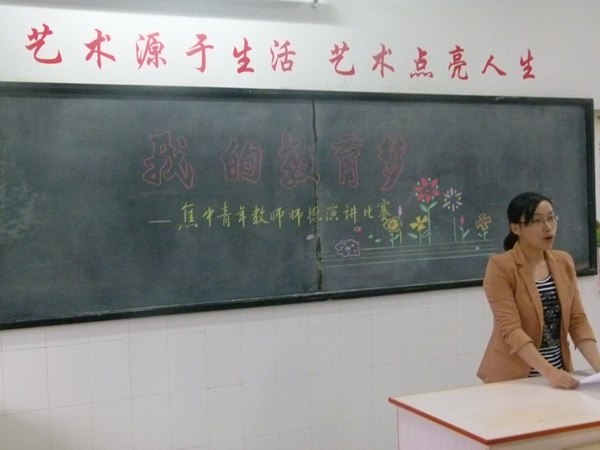 艺术源于生活 艺术点亮人生
我的教育梦
——焦中青年教师师德演讲比赛